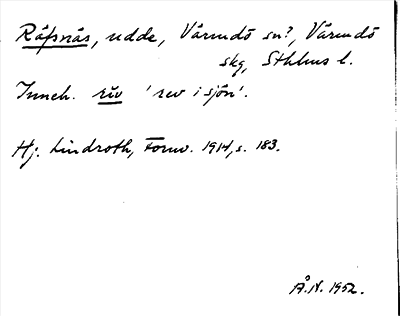 Räfsnäs, udde, Värmdö sn?, Värmdö
skg, Sthlms l.
Inneh. riv 'rev i sjön'.
Hj. Lindroth, Fornv. 1914, s. 183.
Å.N. 1952.